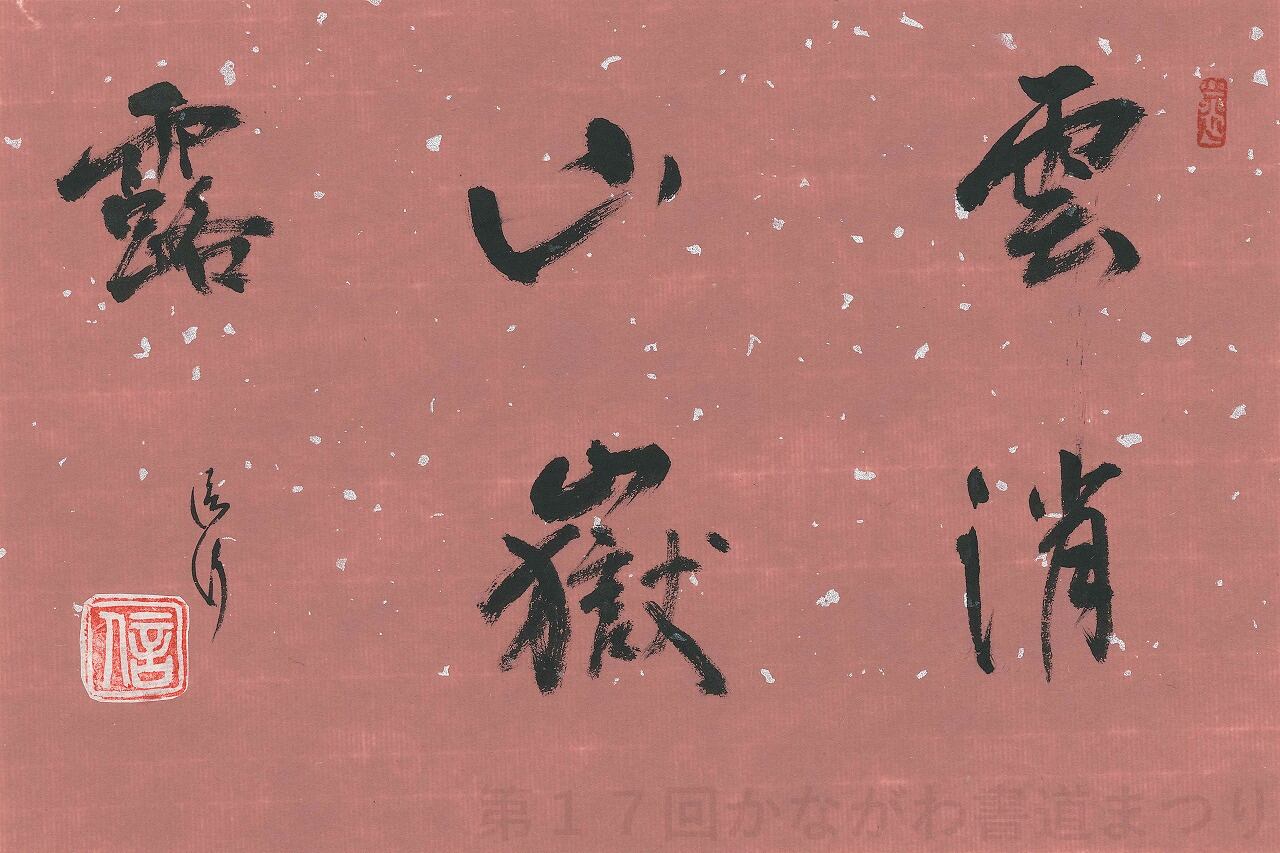 雲消
山嶽
露
信
第17回かながわ書道まつり